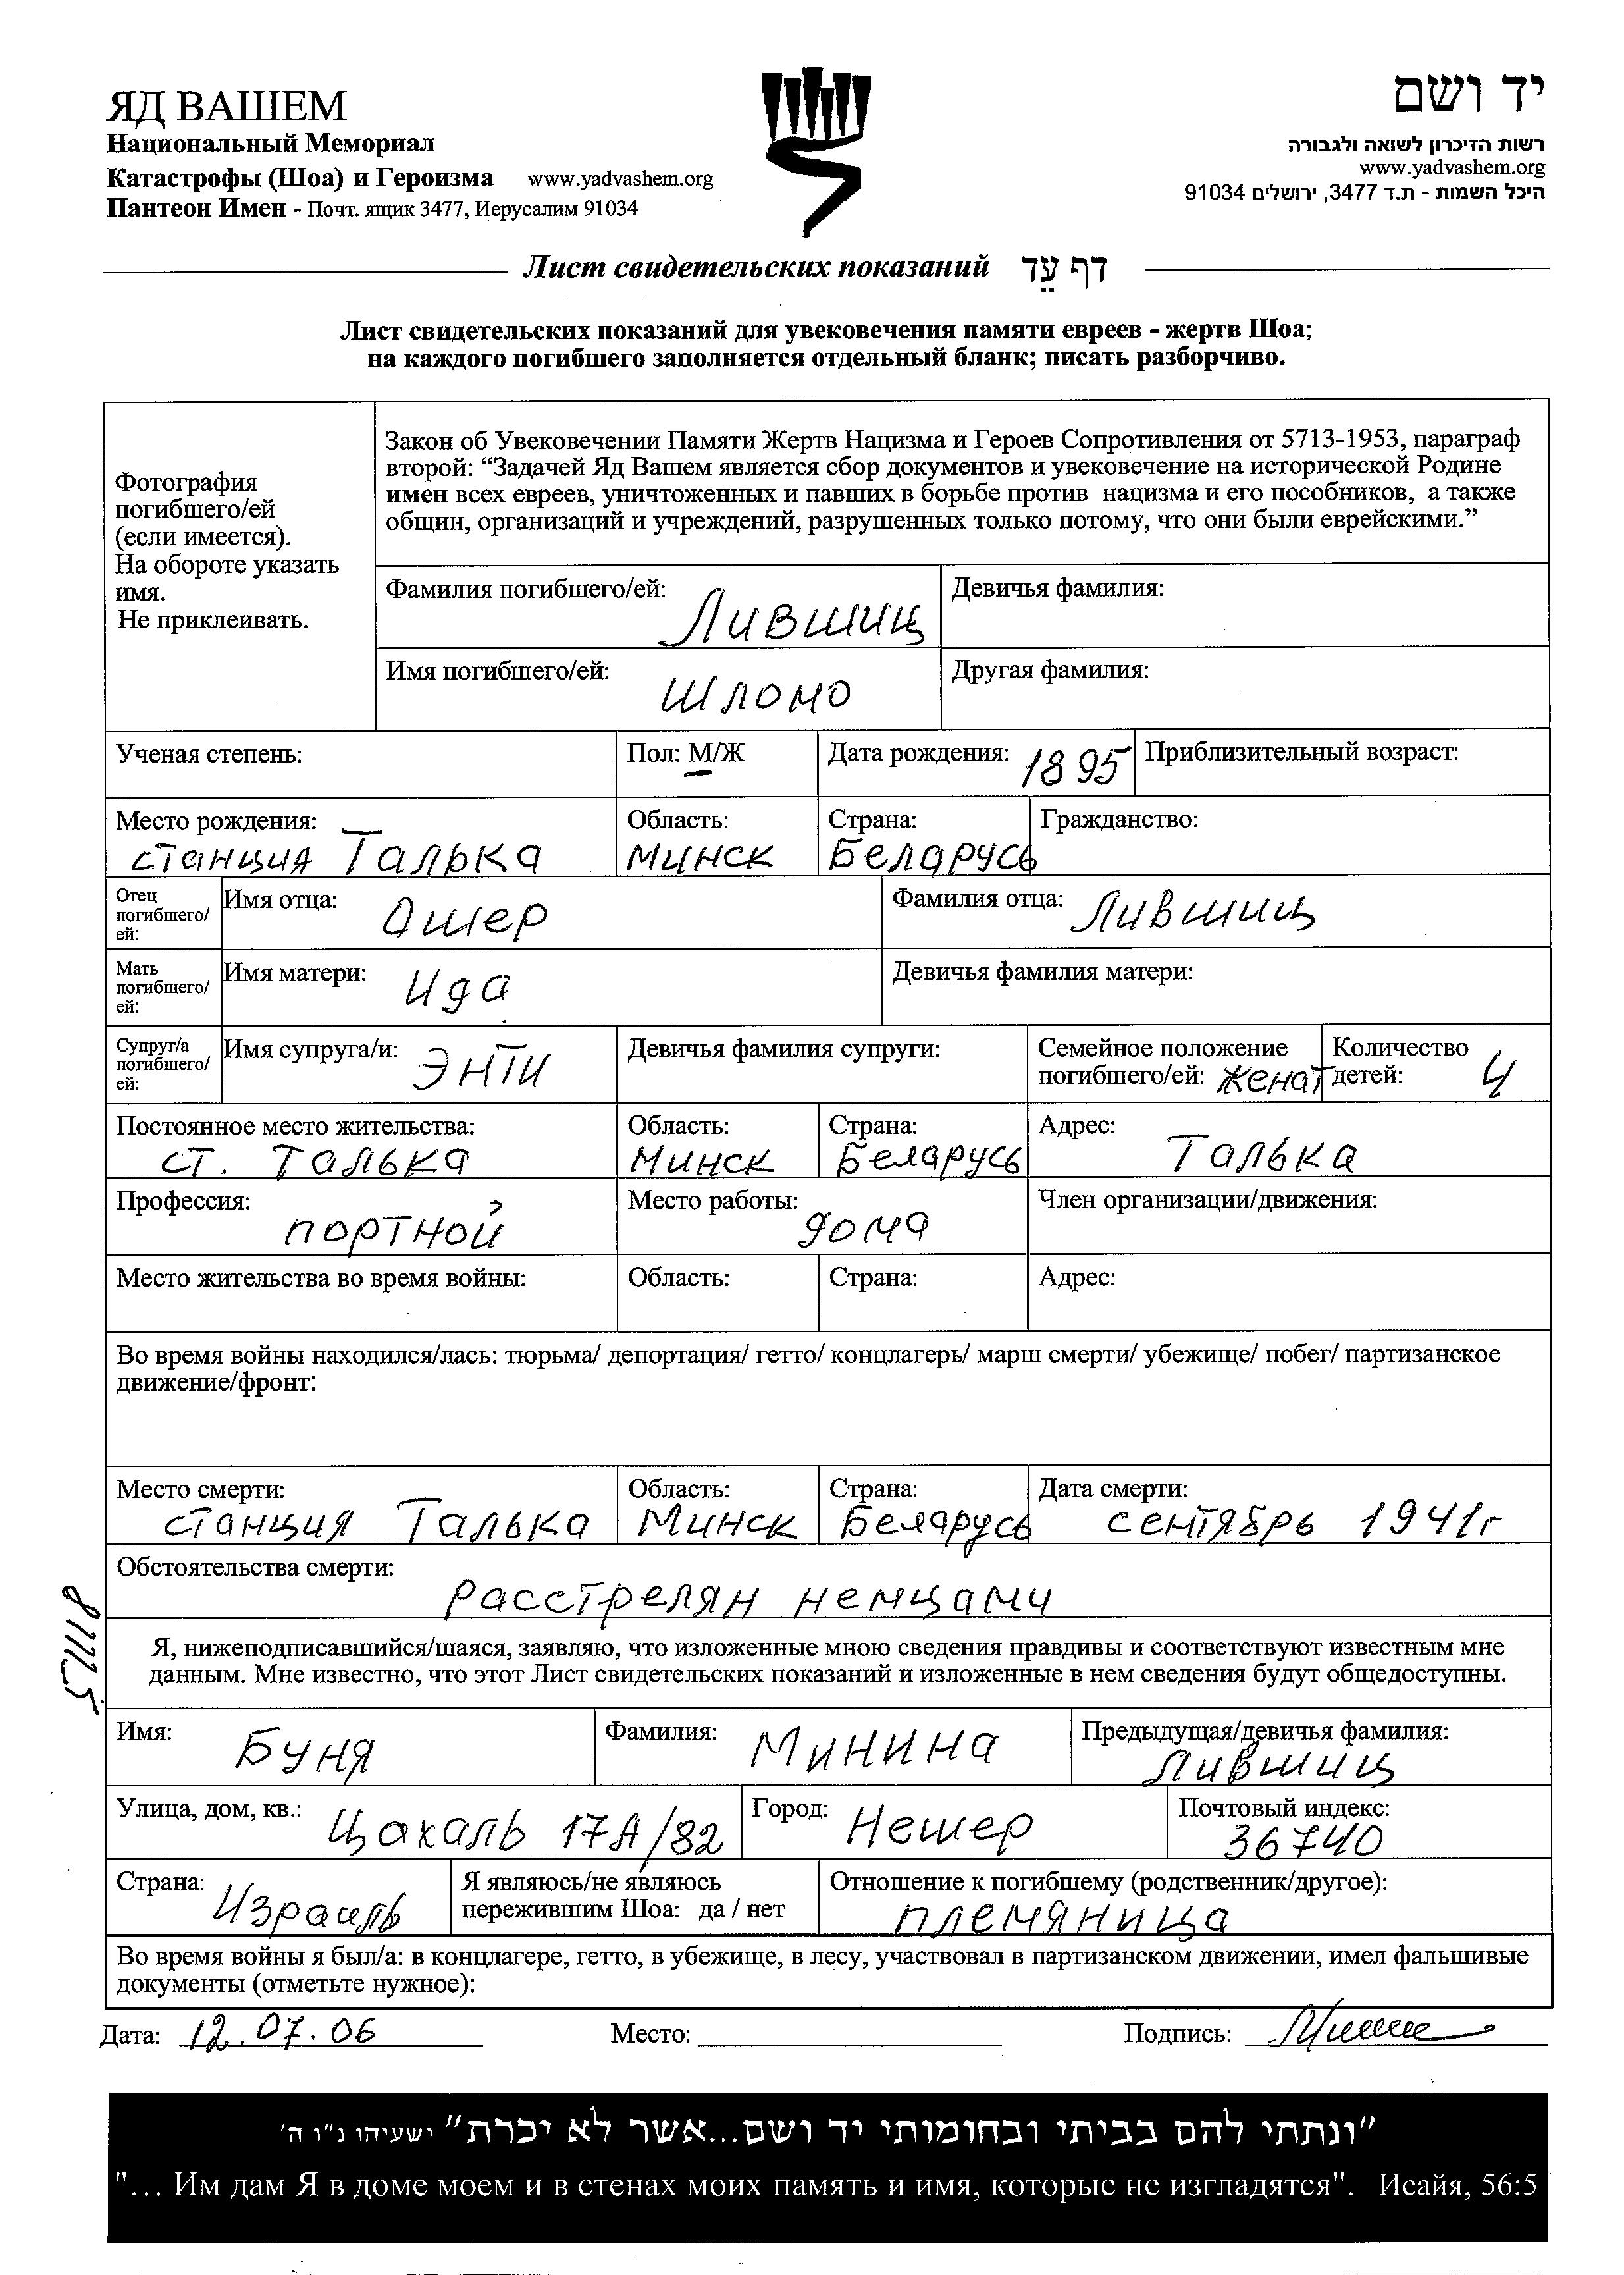 ЯД ВАШЕМ
Национальный Мемориал
Катастрофы (Шоа) и Героизма www.yadvashem.org
Пантеон Имен - Почт. ящик 3477, Иерусалим 91034
יד ושם
רשות הזיכרון לשואה ולגבורה
www.yadvashem.org
היכל השמות - ת.ד 3477, ירושלים 91034
Лист свидетельских показаний דף עֵד
Лист свидетельских показаний для увековечения памяти евреев - жертв Шоа;
на каждого погибшего заполняется отдельный бланк; писать разборчиво.
Фотография
погибшего/ей
(если имеется).
На обороте указать
имя.
Не приклеивать.
Закон об Увековечении Памяти Жертв Нацизма и Героев Сопротивления от 5713-1953, параграф
второй: “Задачей Яд Вашем является сбор документов и увековечение на исторической Родине
имен всех евреев, уничтоженных и павших в борьбе против нацизма и его пособников, а также
общин, организаций и учреждений, разрушенных только потому, что они были еврейскими.”
Фамилия погибшего/ей: Лившиц Девичья фамилия:
Имя погибшего/ей: Шломо Другая фамилия:
Ученая степень: Пол: М/Ж Дата рождения: 1895 Приблизительный возраст:
Место рождения: Область: Страна: Гражданство:
станция Талька Минск Беларусь
Отец
погибшего/
ей:
Имя отца: Ашер Фамилия отца: Лившиц
Мать
погибшего/
ей:
Имя матери: Ида Девичья фамилия матери:
Супруг/а
погибшего/
ей:
Имя супруга/и: Энти Девичья фамилия супруги:
Семейное положение
погибшего/ей: женат
Количество
детей: 4
Постоянное место жительства: Область: Страна: Адрес:
ст. Талька Минск Беларусь Талька
Профессия: портной Место работы: дома Член организации/движения:
Место жительства во время войны: Область: Страна: Адрес:
Во время войны находился/лась: тюрьма/ депортация/ гетто/ концлагерь/ марш смерти/ убежище/ побег/ партизанское
движение/фронт:
Место смерти: Область: Страна: Дата смерти:
станция Талька Минск Беларусь сентябрь 1941г
Обстоятельства смерти:
расстрелян немцами
Я, нижеподписавшийся/шаяся, заявляю, что изложенные мною сведения правдивы и соответствуют известным мне
данным. Мне известно, что этот Лист свидетельских показаний и изложенные в нем сведения будут общедоступны.
Имя: Буня Фамилия: Минина Предыдущая/девичья фамилия:
Лившиц
Улица, дом, кв.: Цахаль 17А/82 Город: Нешер Почтовый индекс:
36740
Страна: Израиль
Я являюсь/не являюсь
пережившим Шоа: да / нет
Отношение к погибшему (родственник/другое):
племяница
Во время войны я был/а: в концлагере, гетто, в убежище, в лесу, участвовал в партизанском движении, имел фальшивые
документы (отметьте нужное):
Дата: 12.07.06 Место: Подпись:
"ונתתי להם בביתי ובחומותי יד ושם...אשר לא יכרת" ישעיהו נ"ו ה'
"... Им дам Я в доме моем и в стенах моих память и имя, которые не изгладятся". Исайя, 56:5